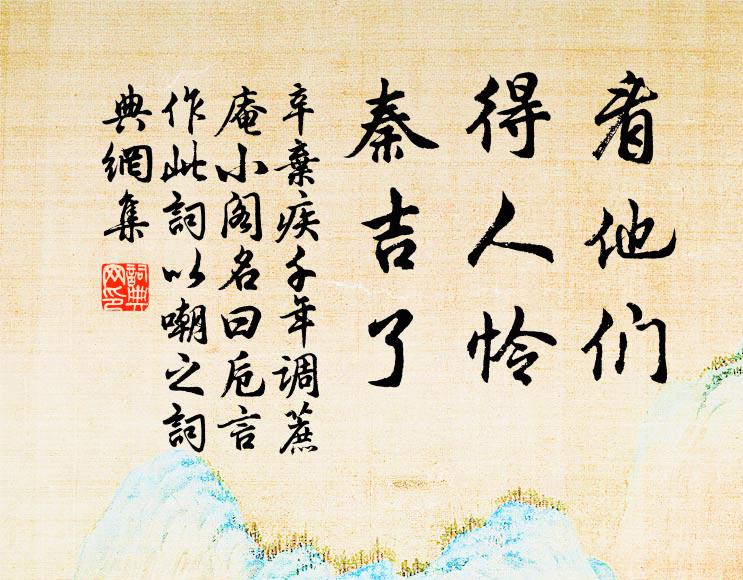 看他们
得人怜
秦吉了
辛棄疾千年调蔗
庵小阁名曰卮言
作此詞以嘲之詞
典網集
詞典
网印